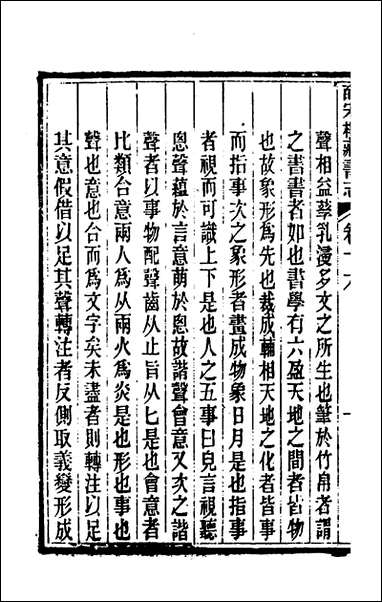 聲相益孳乳漫多文之所生也筆於竹帛者謂
之書書者如也書學有六盈天地之間者皆物
也故象形爲先也裁成輔相天地之化者皆事
而指事次之象形者畫成物象日月是也指事
者視而可識上下是也人之五事曰皃言視聽
恖聲蘊於言意萌於恖故諧聲會意又次之諧
聲者以事物配聲齒从止旨从匕是也會意者
比類合意兩人爲从兩火爲炎是也形也事也
聲也意也合而爲文字矣未盡者則轉注以足
其意假借以足其聲轉注者反側取義變形成
皕宋樓藏書志
卷十六